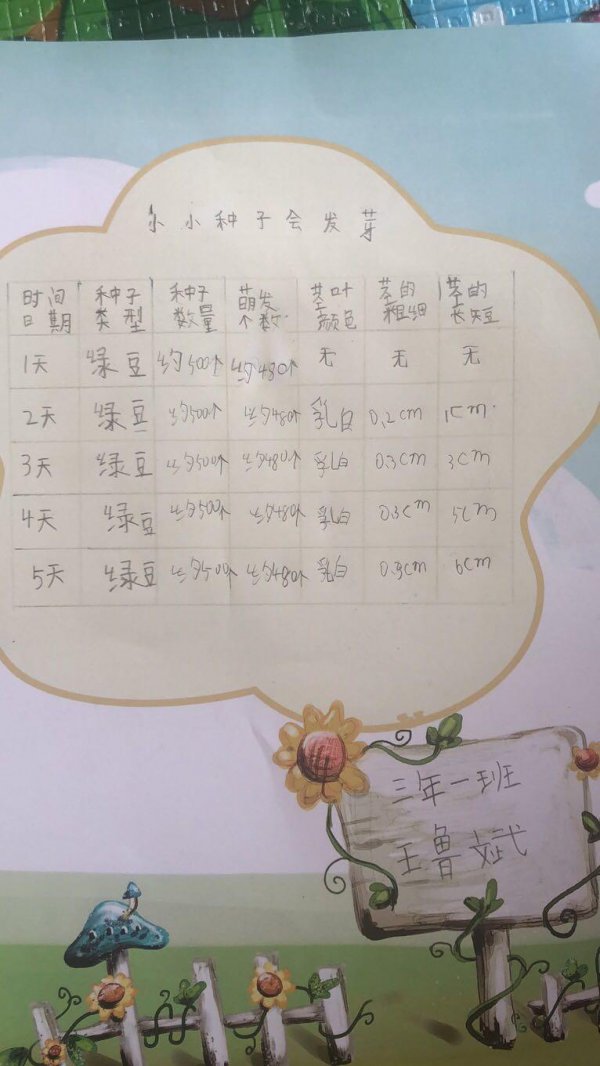 小小种子会发芽
时间日期 种子类型 种子数量 萌发个数 茎叶颜色 茎的粗细 茎的长短
1天 绿豆 约500个 约480个 无 无 无
2天 绿豆 约500个 约480个 乳白 0.2cm 1cm
3天 绿豆 约500个 约480个 乳白 0.3cm 3cm
4天 绿豆 约500个 约480个 乳白 0.3cm 5cm
5天 绿豆 约500个 约480个 乳白 0.3cm 6cm
三年一班
王鲁斌